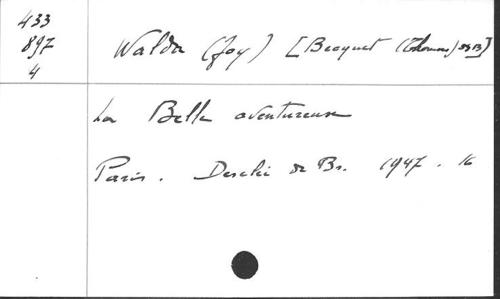 433
897
4
Walda (Joy) [Becquet (Thomas) OSB]
La Belle aventureuse
Paris. Desclée de Br. 1947. 16